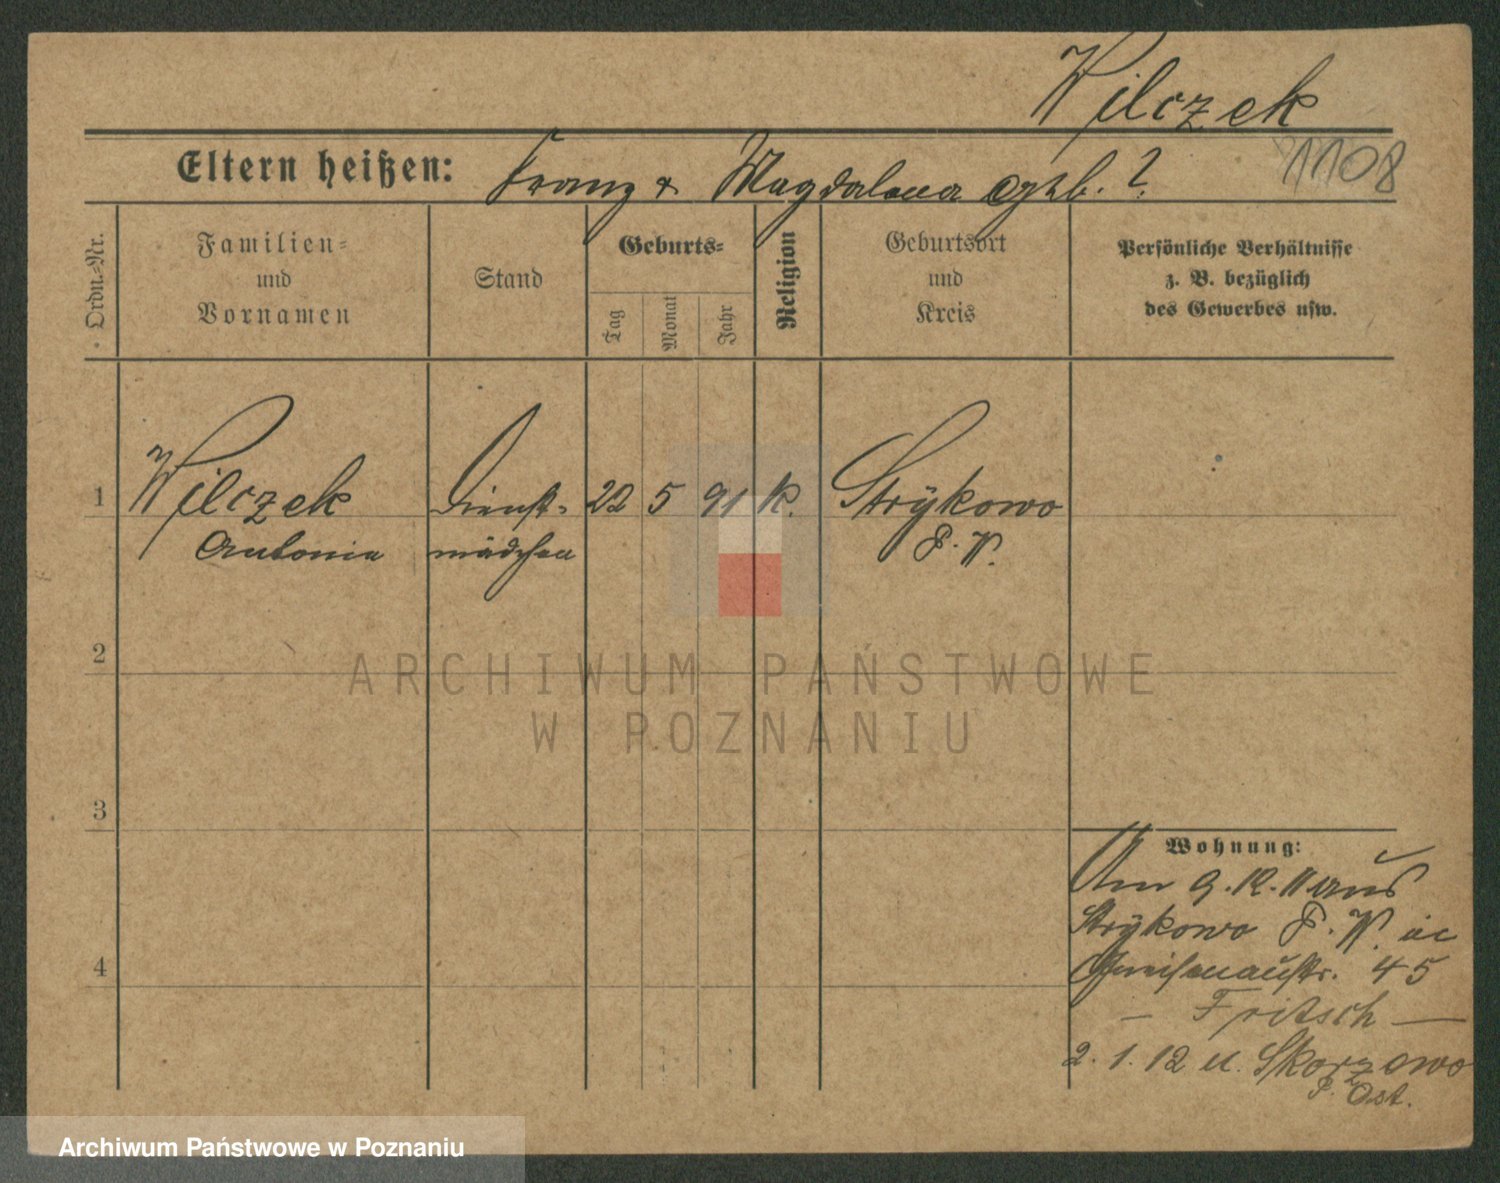 Wilczek
1108
Eltern heißen: Franz & Magdalena geb. ?
Ordn.-Nr.
Familien-
und
Vornamen
Stand
Geburts-
Tag
Monat
Jahr
Religion
Geburtsort
und
Kreis
Persönliche Verhältnisse
z. B. bezüglich
des Gewerbes usw.
1 Wilczek Dienst- 22 5 91 K. Strykowo
Antonie mädchen P. W.
2
ARCHIWUM PAŃSTWOWE
W POZNANIU
3
Wohnung:
Am 9. 12. 11 aus
Strykowo P. W. in
4
Gneisenaustr. 45
— Fritsch —
2. 1. 12 n. Skorzewo
P. Ost.
Archiwum Państwowe w Poznaniu